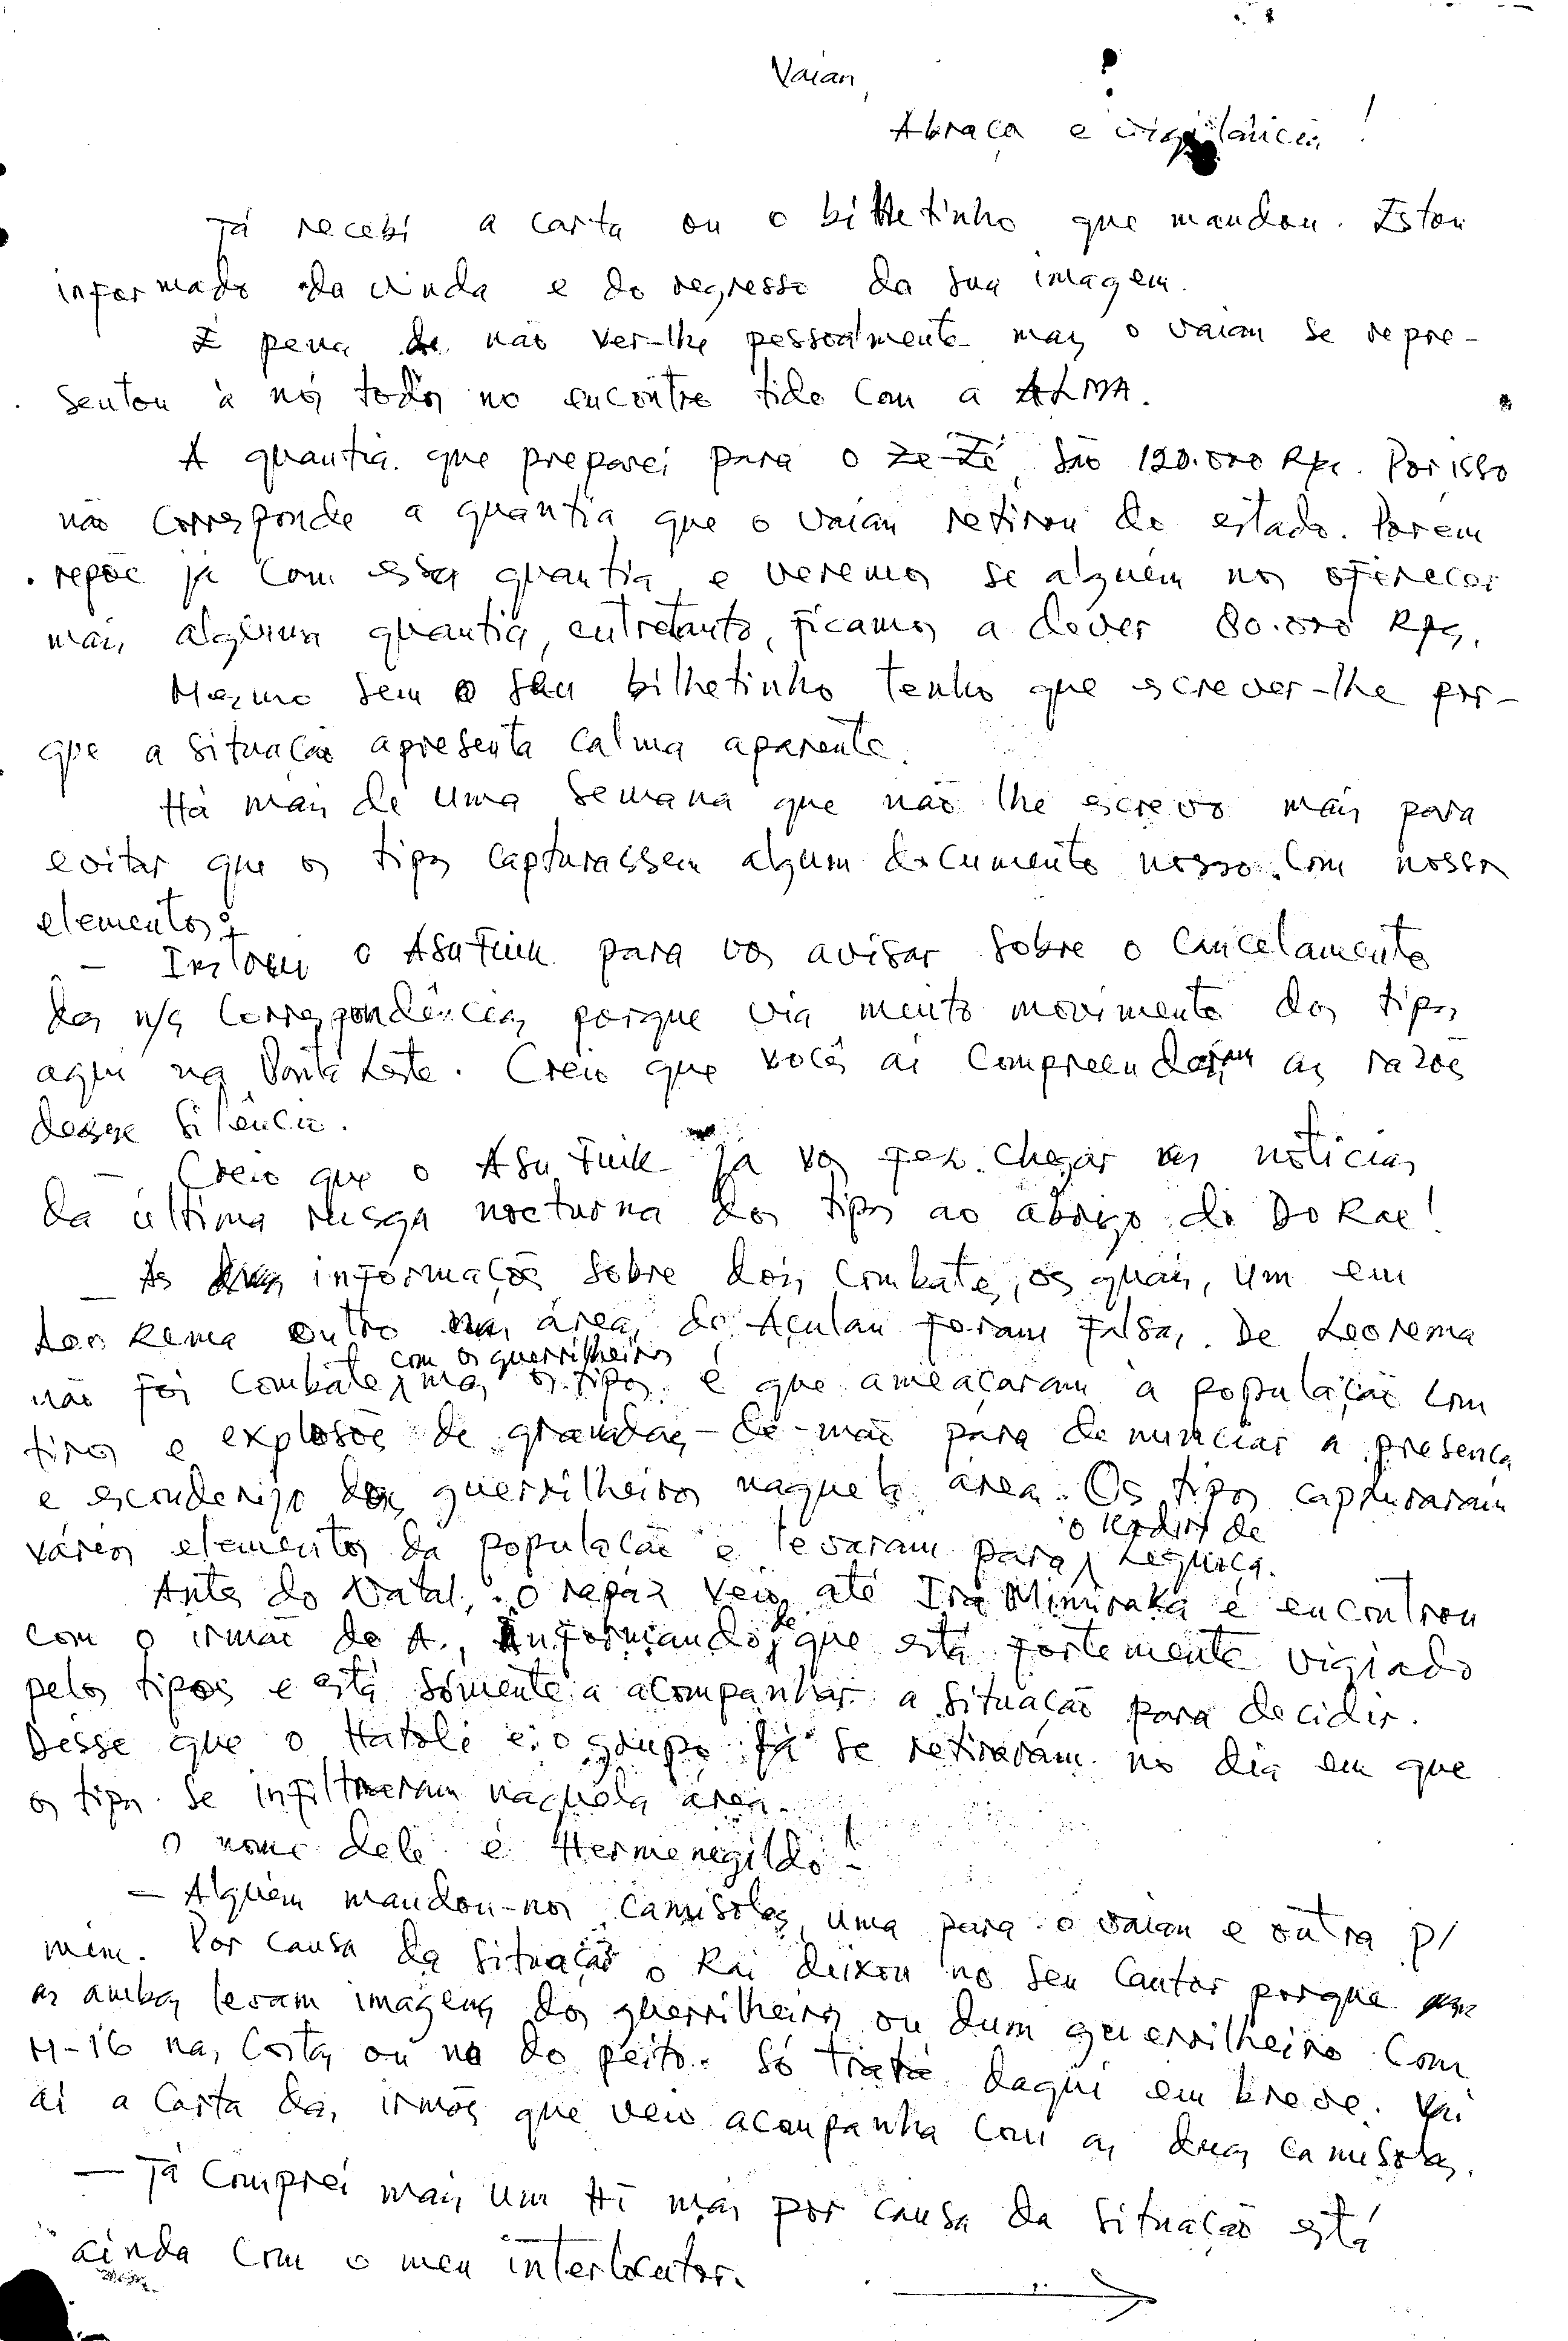 Vaian,
Abraço e vigilância!
Já recebi a carta ou o bilhetinho que mandou. Estou
informado da vinda e do regresso da sua imagem.
É pena de não ver-lhe pessoalmente mas o Vaian se repre-
sentou à nós todos no encontro tido com a ALMA.
A quantia que preparei para o Ze-Zé são 120.000 Rps. Por isso
não corresponde a quantia que o Vaian retirou do estado. Porém
repõe já com essa quantia e veremos se alguém nos oferecer
mais alguma quantia, entretanto, ficamos a dever 80.000 Rps.
Mesmo sem o seu bilhetinho tenho que escrever-lhe por-
que a situação apresenta calma aparente.
Há mais de uma semana que não lhe escrevo mais para
evitar que os tipos capturassem algum documento nosso com nossos
elementos:
- o Asu Fuik para vos avisar sobre o cancelamento
das n/s correspondências porque via muito movimento dos tipos
aqui na Ponta Leste. Creio que vocês aí compreenderam as razões
desse silêncio.
- Creio que o Asu Fuik já vos fez chegar as notícias
da última rusga nocturna dos tipos ao abrigo do DoRae!
- As informações sobre dois combates, os quais, um em
Leo Rema outro na área de Açulau foram falsas. De Leorema
não foi combate com os guerrilheiros, mas os tipos é que ameaçaram a população com
tiros e explosões de granadas-de-mão para denunciar a presença
e esconderijo dos guerrilheiros naquela área. Os tipos capturaram
vários elementos da população e levaram para o de Lequiça.
Antes do Natal, o rapaz veio até e encontrou
com o irmão do A., informando de que está fortemente vigiado
pelos tipos e está sòmente a acompanhar a situação para decidir.
Disse que o Hatoli e o grupo já se retiraram no dia em que
os tipos se infiltraram naquela área.
O nome dele é Hermenegildo!
- Alguém mandou-nos camisolas, uma para o Vaian e outra p/
mim. Por causa da situação o Rai deixou no seu Cantor porque
as ambas levam imagens dos guerrilheiros ou dum guerrilheiro com
M-16 nas costas ou no do peito. Só daqui em breve. Vai
aí a carta das irmãs que veio acompanha com as duas camisolas.
- Já comprei mais um Hi mas por causa da situação está
ainda com o meu interlocutor.